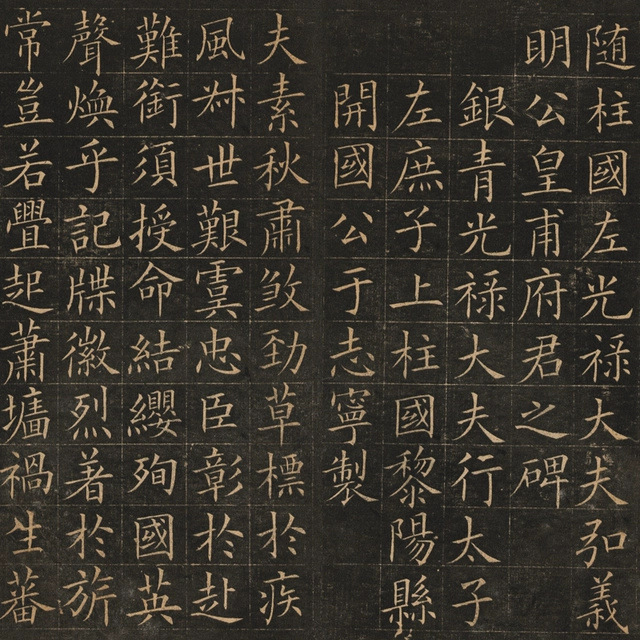 随柱國左光禄大夫弘義
明公皇甫府君之碑
銀青光禄大夫行太子
左庶子上柱國黎陽縣
開國公于志寧製
夫素秋肅煞勁草標於疾
風叔世艱虞忠臣彰於赴
難銜須授命結纓殉國英
聲煥乎記牒徽烈著於旂
常豈若舋起蕭墻禍生蕃